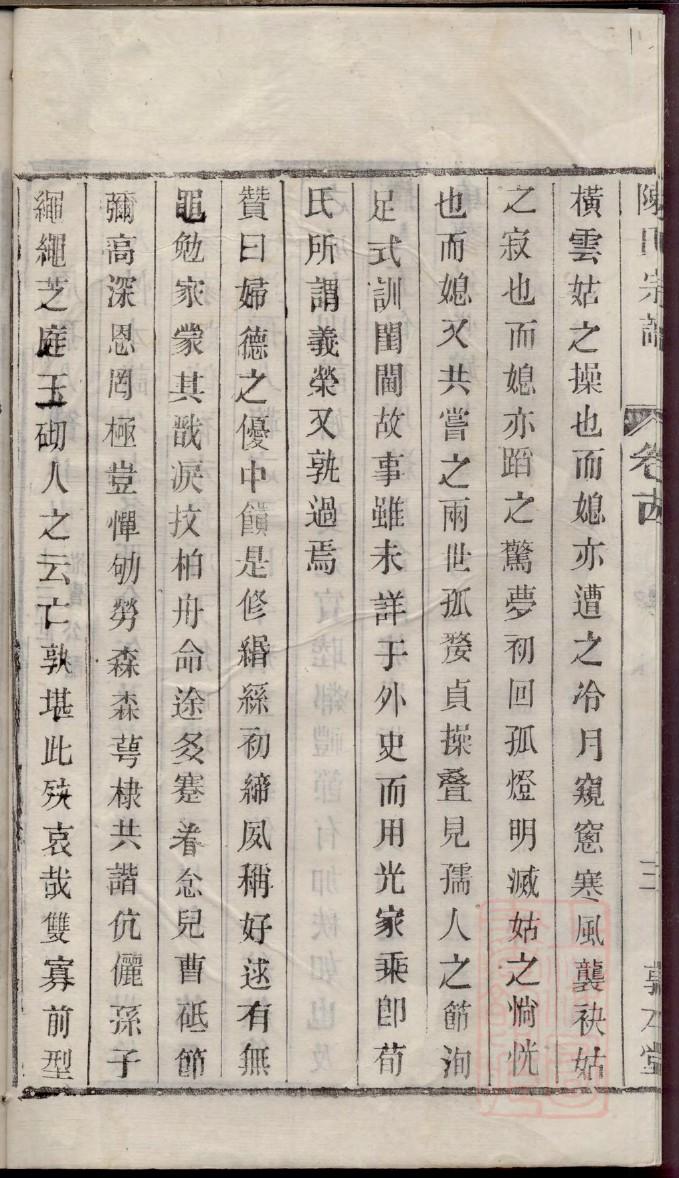 陳氏宗譜 卷古 三 敦本堂
橫雲姑之操也而媳亦遭之冷月窺窻寒風襲袂姑
之寂也而媳亦蹈之驚夢初回孤燈明滅姑之惝恍
也而媳又共嘗之兩世孤嫠貞操叠見孺人之節洵
足式訓閨閫故事雖未詳于外史而用光家乘卽荀
氏所謂義榮又孰過焉
贊曰婦德之優中饋是修緡絲初締夙稱好逑有無
黽勉家蒙其戩淚抆柏舟命途多蹇眷念兒曹砥節
彌高深恩罔極豈憚劬勞森森萼棣共諧伉儷孫子
繩繩芝庭玉砌人之云亡孰堪此殃哀哉雙寡前型